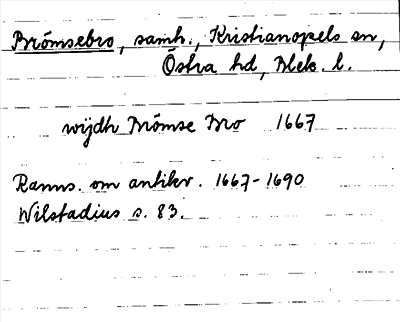 Brömsebro, samh., Kristianopels sn,
Östra hd, Blek. l.
wijdh Brömse Bro 1667
Ranns. om antikv. 1667-1690
Wilstadius s. 83.